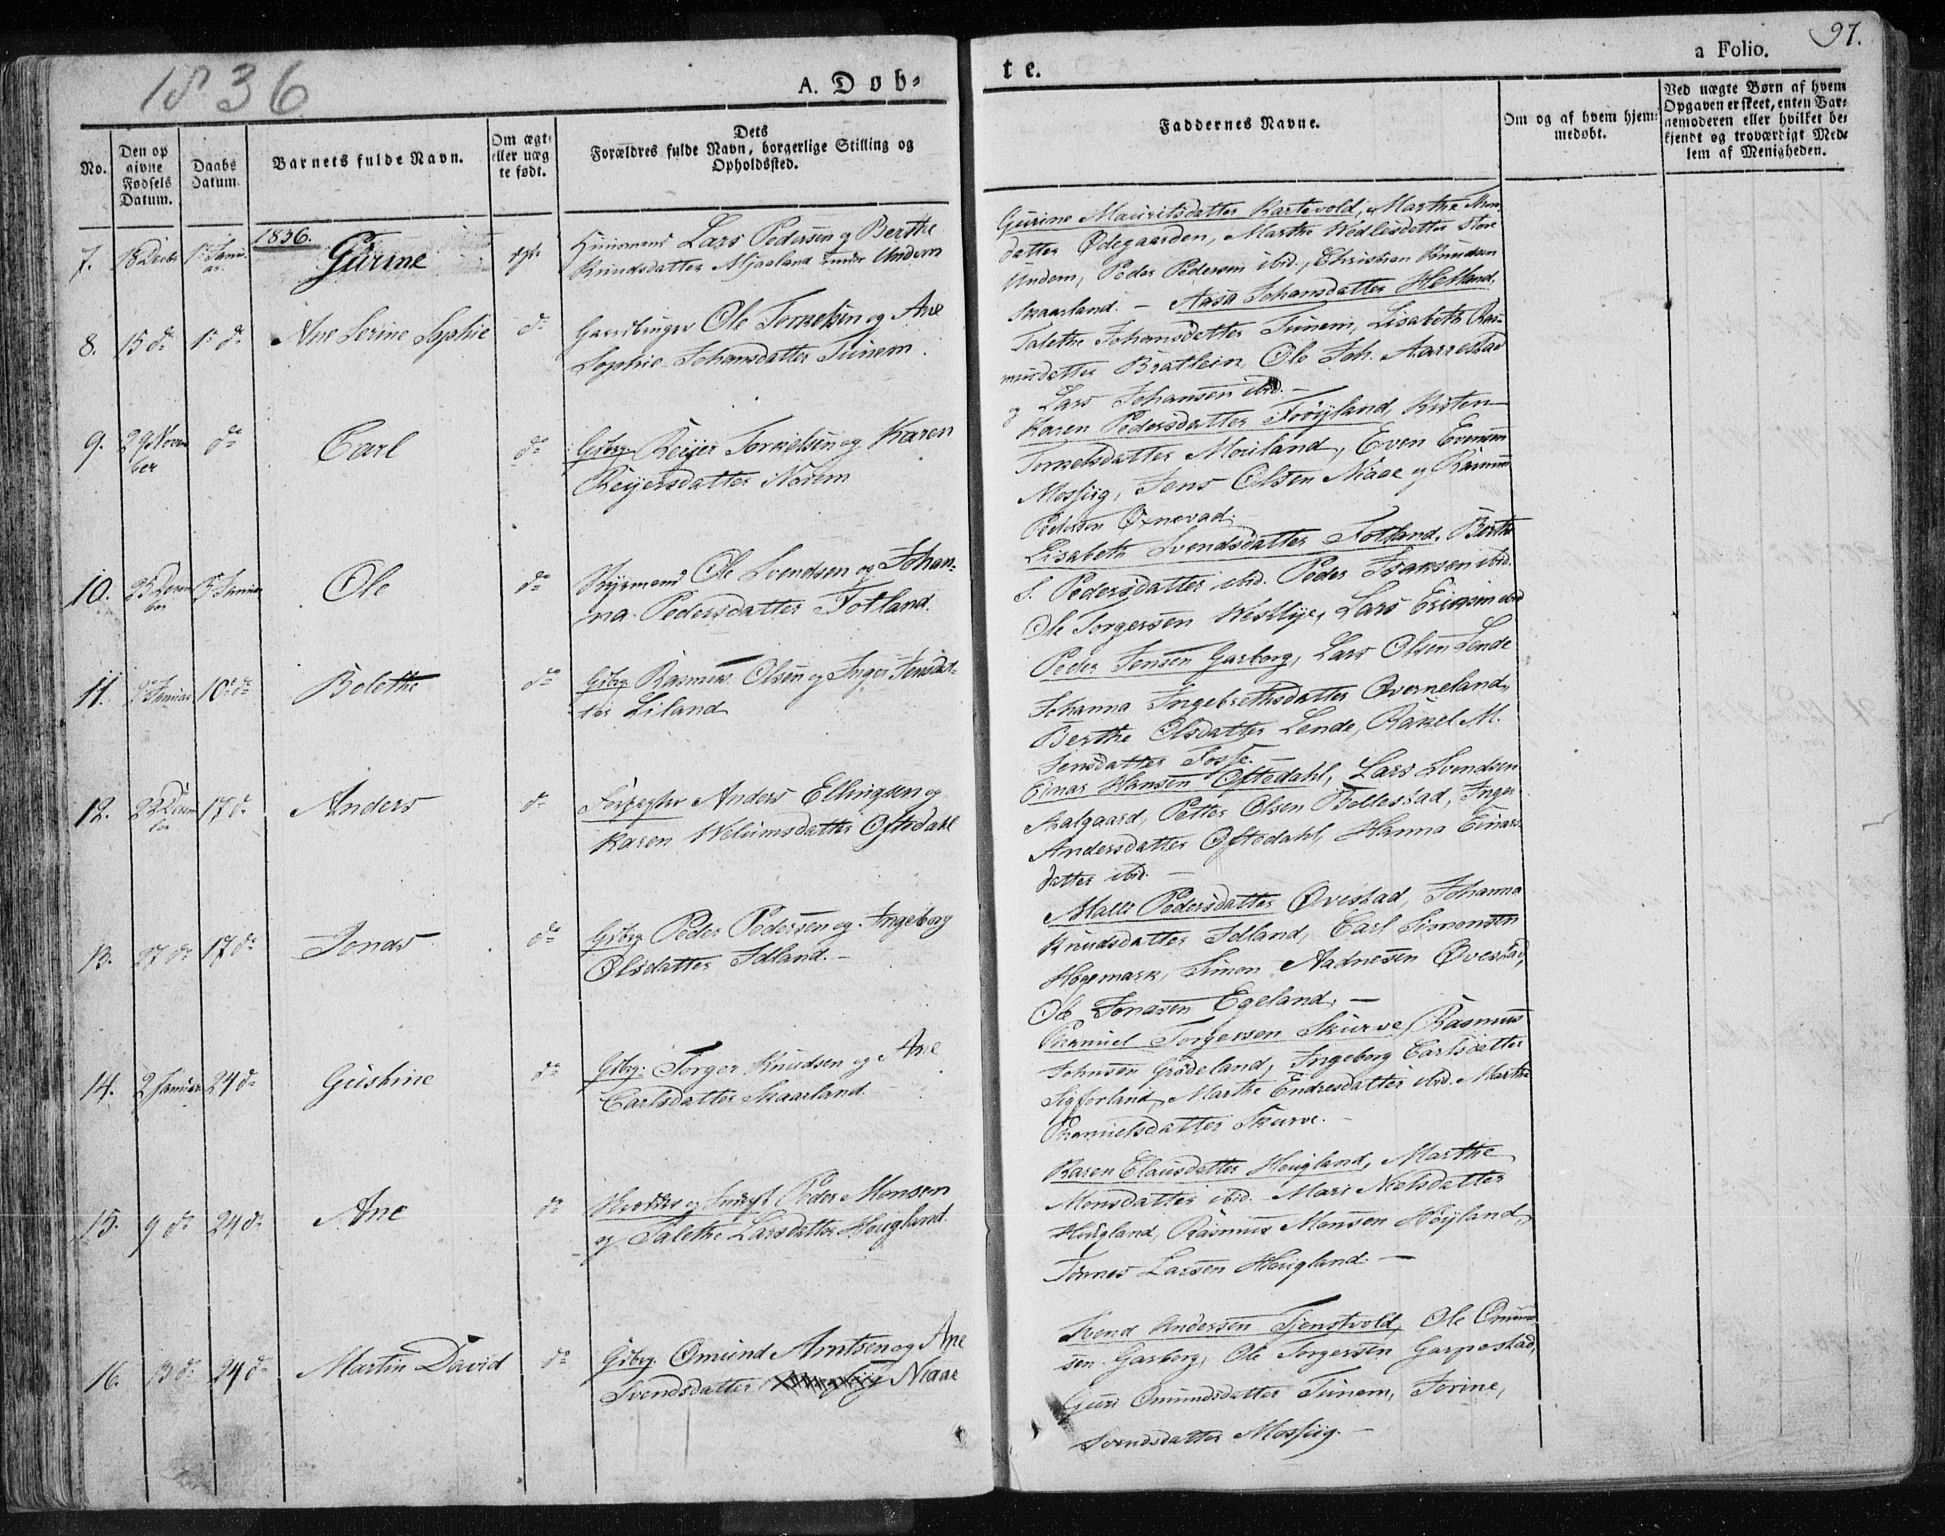 1836
A. Døb-
te.
a Folio.
97.
No.
Den op
givne
Fødsels
Datum.
Daabs
Datum.
Barnets fulde Navn.
Om ægte
eller uæg
te født.
Dets
Forældres fulde Navn, borgerlige Stilling og
Opholdssted.
Faddernes Navne.
Om og af hvem hjem-
medøbt.
Ved uægte Børn af hvem
Opgaven er skeet, enten Bar-
nemoderen eller hvilket be-
kjendt og troværdigt Med-
lem af Menigheden.
1836.
7. Gurine
Huusmand Lars Pedersen og Berthe
Knudsdatter Mjaaland under Undem
Gurine Mauritsdatter Kartevold, Marthe
datter Ødegaarden, Marthe Vedlesdatter Store
Undem, Peder Pedersen ibid., Christian Knudsen
Skaarland. –
8. 15 do 1 do Ane Serine Sophie do
Ole Torkelsen og Ane
Sophie Johansdatter Tunem.
Aasa Johansdatter Hetland,
Talethe Johansdatter Tunem, Lisabeth Ras-
musdatter Bratlein, Ole Joh. Aarrestad
og Lars Johansen ibid. –
9. 29 Novem
ber do Carl do
Gbrg. Reijer Torkelsen og Karen
Reijersdatter Norem
Karen Pedersdatter Frøyland, Kisten
Torkelsdatter Moriland, Even Evensen
Mossiig, Jens Olsen Niaae og Rasmus
Pedersen Øxnevad.
10. Ole do
Ole Svendsen og Johan-
na Pedersdatter Fotland.
Lisabeth Svendsdatter Fotland, Berthe
S. Pedersdatter ibid. Peder Isaksen ibid.
Ole Torgersen Westlye, Lars Ericksen ibid
11. Januar 10 do Bolethe do
Gbrg. Rasmus Olsen og Inger Jensdat-
ter Liland
Peder Jensen Garborg, Lars Olsen Lende
Johanna Ingebrethsdatter Qverneland,
Berthe Olsdatter Lende, Rakel M.
Jensdatter Fosse. –
12. 17 do Anders do
Anders Ellingsen og
Karen Wilumsdatter Oftedahl
Einar Hansen Oftedahl, Lars Svendsen
Aalgaard, Petter Olsen Bollestad, Inger
Andersdatter Oftedahl, Hanna Einars
datter ibid. –
13. 27 do 17 do Jonas do
Gbrg. Peder Pedersen og Ingeborg
Olsdatter Idland. –
Malli Pedersdatter Øvestad, Johanna
Knudsdatter Idland, Carl Simonsen
Høgemark, Simon Aadnesen Øvestad,
Ole Jonasen Egeland. –
14. 2 Januar 24 do Gustine do
Gbrg. Torger Knudsen og Ane
Carlsdatter Skaarland.
Torgersen Skurve, Rasmus
Johnsen Grødeland, Ingeborg Carlsdatter
Sigforland, Marthe Endresdatter ibid. Marthe
Skurve. –
15. 9 do 24 do Ane do
Peder Monsen
og Talethe Larsdatter Høigland.
Karen Clausdatter Høigland, Marthe
Monsdatter ibid. Mari Neelsdatter
Høigland, Rasmus Monsen Høyland,
Tønnes Larsen Høigland. –
16. 13 do 24 do Martin David do
Gbrg. Omund Arntsen og Ane
Svendsdatter Niaae
Svend Andersen Tjenstvold, Ole Omund
sen Garborg, Ole Torgersen Garpestad,
Guri Omundsdatter Tunem, Torine,
Svendsdatter Mossiig. –